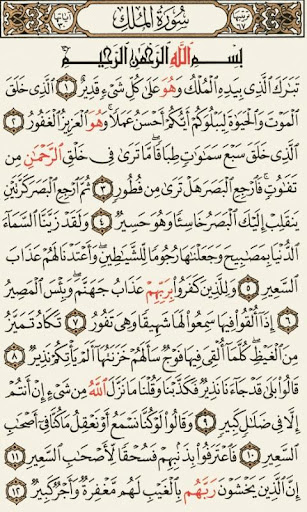 سُورَةُ الْمُلْكِ
بِسْمِ اللَّهِ الرَّحْمَٰنِ الرَّحِيمِ
تَبَارَكَ الَّذِي بِيَدِهِ الْمُلْكُ وَهُوَ عَلَىٰ كُلِّ شَيْءٍ قَدِيرٌ ۝١ الَّذِي خَلَقَ
الْمَوْتَ وَالْحَيَاةَ لِيَبْلُوَكُمْ أَيُّكُمْ أَحْسَنُ عَمَلًا وَهُوَ الْعَزِيزُ الْغَفُورُ ۝٢
الَّذِي خَلَقَ سَبْعَ سَمَاوَاتٍ طِبَاقًا مَا تَرَىٰ فِي خَلْقِ الرَّحْمَٰنِ مِن
تَفَاوُتٍ فَارْجِعِ الْبَصَرَ هَلْ تَرَىٰ مِن فُطُورٍ ۝٣ ثُمَّ ارْجِعِ الْبَصَرَ كَرَّتَيْنِ
يَنقَلِبْ إِلَيْكَ الْبَصَرُ خَاسِئًا وَهُوَ حَسِيرٌ ۝٤ وَلَقَدْ زَيَّنَّا السَّمَاءَ
الدُّنْيَا بِمَصَابِيحَ وَجَعَلْنَاهَا رُجُومًا لِّلشَّيَاطِينِ وَأَعْتَدْنَا لَهُمْ عَذَابَ
السَّعِيرِ ۝٥ وَلِلَّذِينَ كَفَرُوا بِرَبِّهِمْ عَذَابُ جَهَنَّمَ وَبِئْسَ الْمَصِيرُ
۝٦ إِذَا أُلْقُوا فِيهَا سَمِعُوا لَهَا شَهِيقًا وَهِيَ تَفُورُ ۝٧ تَكَادُ تَمَيَّزُ
مِنَ الْغَيْظِ كُلَّمَا أُلْقِيَ فِيهَا فَوْجٌ سَأَلَهُمْ خَزَنَتُهَا أَلَمْ يَأْتِكُمْ نَذِيرٌ ۝٨
قَالُوا بَلَىٰ قَدْ جَاءَنَا نَذِيرٌ فَكَذَّبْنَا وَقُلْنَا مَا نَزَّلَ اللَّهُ مِن شَيْءٍ إِنْ أَنتُمْ
إِلَّا فِي ضَلَالٍ كَبِيرٍ ۝٩ وَقَالُوا لَوْ كُنَّا نَسْمَعُ أَوْ نَعْقِلُ مَا كُنَّا فِي أَصْحَابِ
السَّعِيرِ ۝١٠ فَاعْتَرَفُوا بِذَنبِهِمْ فَسُحْقًا لِّأَصْحَابِ السَّعِيرِ ۝١١
إِنَّ الَّذِينَ يَخْشَوْنَ رَبَّهُم بِالْغَيْبِ لَهُم مَّغْفِرَةٌ وَأَجْرٌ كَبِيرٌ ۝١٢